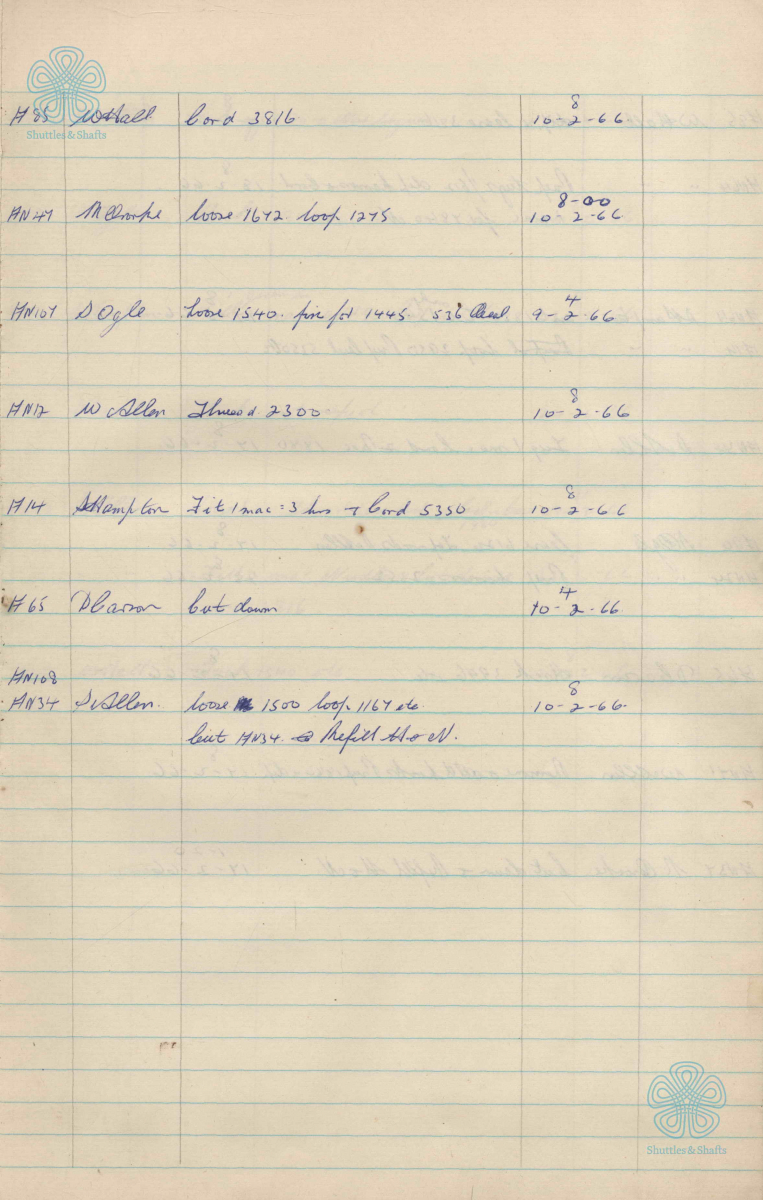 Shuttles & Shafts
8
H 85 W Hall Cord 3816 10-2-66
8-00
HN 47 loose 1672. loop 1275 10-2-66
4
HN107 S Ogle loose 1540. fire for 1445 536 Dead 9-2-66
8
HN12 W Allen Thread 2300 10-2-66
8
H14 S Hampton Fit 1 mac = 3 hrs Cord 5350 10-2-66
4
H 65 D Carson Cut down 10-2-66
HN108 8
HN34 S Allen. loose 1500 loop. 1167 etc. 10-2-66.
Cut HN34. Refill
Shuttles & Shafts